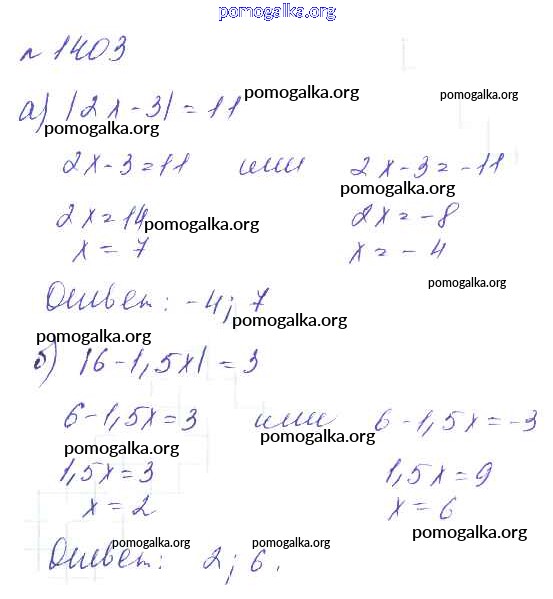 pomogalka.org
№ 1403
а) |2x - 3| = 11 pomogalka.org pomogalka.org
pomogalka.org
2x - 3 = 11 или 2x - 3 = -11
pomogalka.org
2x = 14 pomogalka.org 2x = -8
x = 7 x = -4
pomogalka.org
Ответ: -4; 7
pomogalka.org
pomogalka.org
б) |6 - 1,5x| = 3
6 - 1,5x = 3 или 6 - 1,5x = -3
pomogalka.org pomogalka.org
1,5x = 3 1,5x = 9
x = 2 x = 6
pomogalka.org
pomogalka.org pomogalka.org
Ответ: 2; 6.